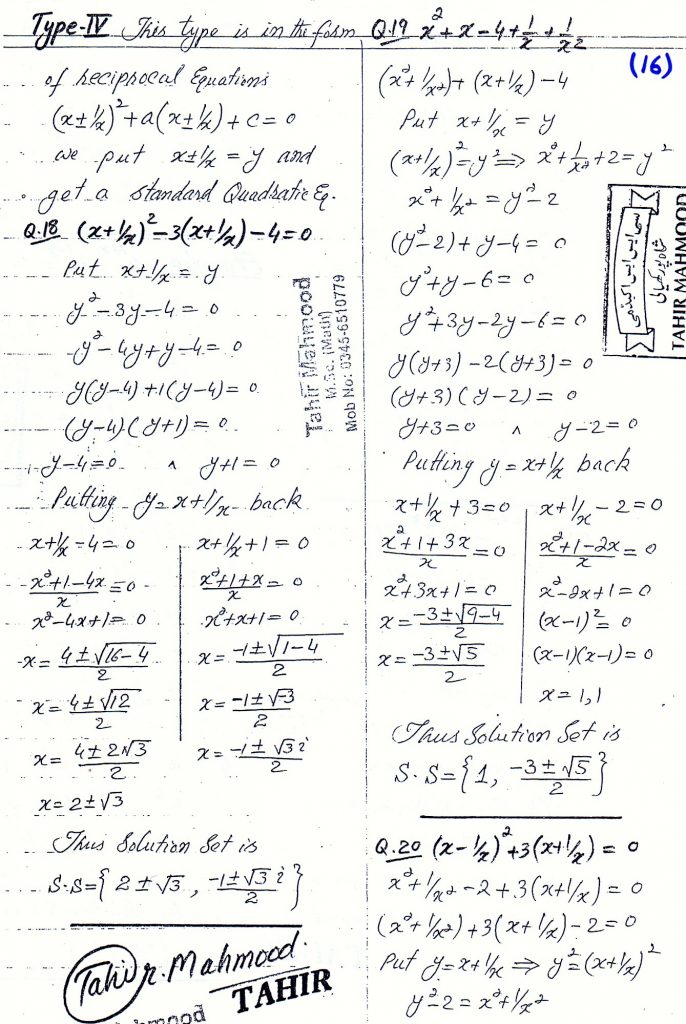 Type-IV This type is in the form
of reciprocal Equations
(x±1/x)² + a(x±1/x) + c = 0
we put x±1/x = y and
get a standard Quadratic Eq.
Q.18 (x+1/x)² - 3(x+1/x) - 4 = 0
Put x+1/x = y
y² - 3y - 4 = 0
y² - 4y + y - 4 = 0
y(y-4) + 1(y-4) = 0
(y-4)(y+1) = 0
y-4 = 0 ∧ y+1 = 0
Putting y = x+1/x back
x+1/x - 4 = 0 | x+1/x + 1 = 0
(x²+1-4x)/x = 0 | (x²+1+x)/x = 0
x² - 4x + 1 = 0 | x²+x+1 = 0
x = (4±√(16-4))/2 | x = (-1±√(1-4))/2
x = (4±√12)/2 | x = (-1±√-3)/2
x = (4±2√3)/2 | x = (-1±√3 i)/2
x = 2±√3
Thus Solution Set is
S.S = { 2±√3 , (-1±√3 i)/2 }
Tahir Mahmood
TAHIR
Tahir Mahmood
M.Sc. (Math)
Mob No: 0345-6510779
Q.19 x² + x - 4 + 1/x + 1/x²
(16)
(x²+1/x²) + (x+1/x) - 4
Put x+1/x = y
(x+1/x)² = y² ⇒ x² + 1/x² + 2 = y²
x² + 1/x² = y² - 2
(y²-2) + y - 4 = 0
y² + y - 6 = 0
y² + 3y - 2y - 6 = 0
y(y+3) - 2(y+3) = 0
(y+3)(y-2) = 0
y+3 = 0 ∧ y-2 = 0
Putting y = x+1/x back
x+1/x + 3 = 0 | x+1/x - 2 = 0
(x²+1+3x)/x = 0 | (x²+1-2x)/x = 0
x²+3x+1 = 0 | x²-2x+1 = 0
x = (-3±√(9-4))/2 | (x-1)² = 0
x = (-3±√5)/2 | (x-1)(x-1) = 0
x = 1,1
Thus Solution Set is
S.S = { 1, (-3±√5)/2 }
Q.20 (x-1/x)² + 3(x+1/x) = 0
x² + 1/x² - 2 + 3(x+1/x) = 0
(x²+1/x²) + 3(x+1/x) - 2 = 0
Put y = x+1/x ⇒ y² = (x+1/x)²
y² - 2 = x² + 1/x²
TAHIR MAHMOOD